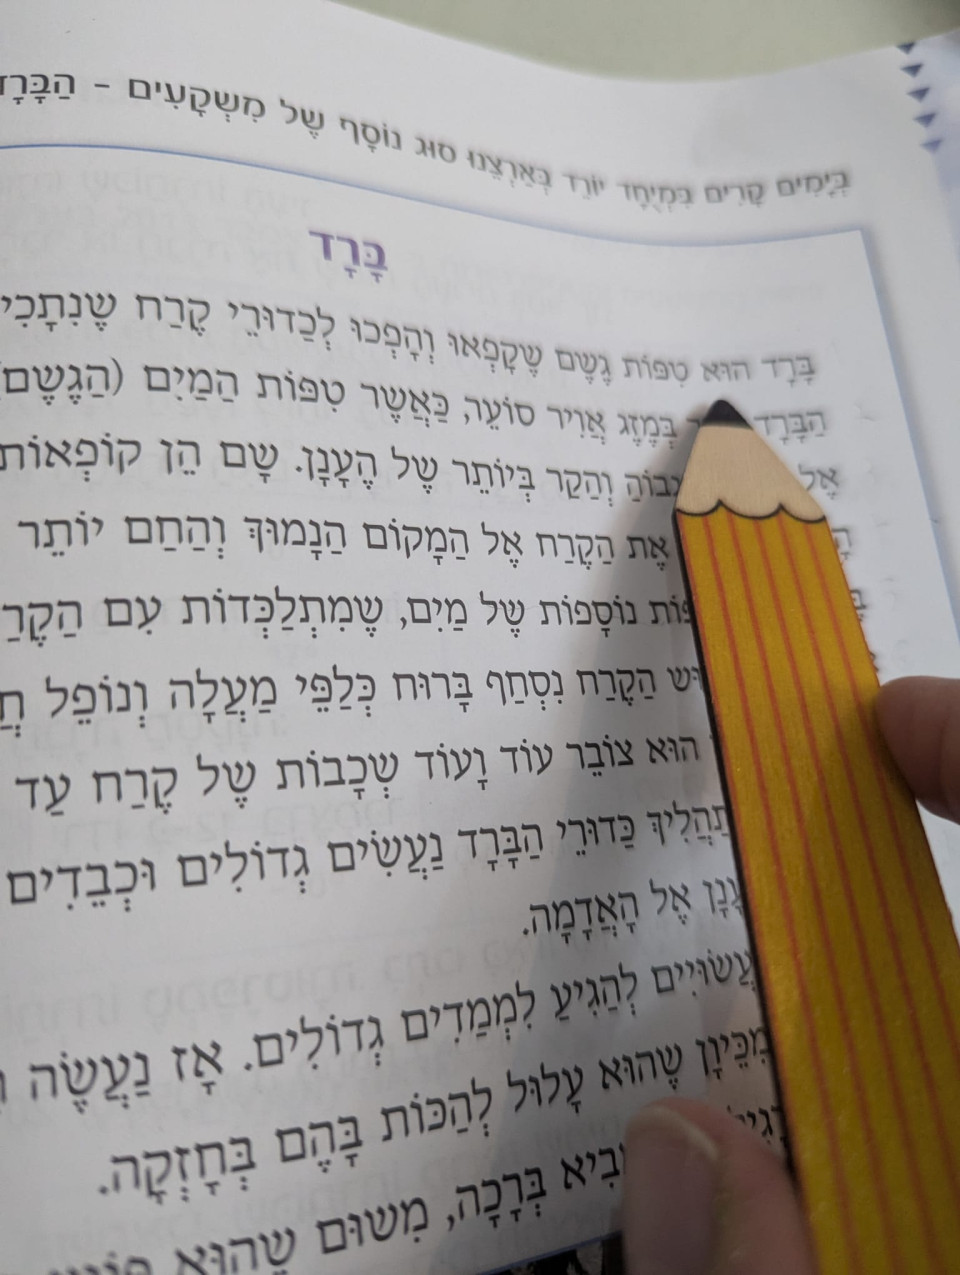 בְּיָמִים קָרִים בִּמְיֻחָד יוֹרֵד בְּאַרְצֵנוּ סוּג נוֹסָף שֶׁל מִשְׁקָעִים – הַבָּרָד
בָּרָד
בָּרָד הוּא טִפּוֹת גֶּשֶׁם שֶׁקָּפְאוּ וְהָפְכוּ לְכַדּוּרֵי קֶרַח שֶׁנִּתָּכִי
הַבָּרָד בְּמֶזֶג אֲוִיר סוֹעֵר, כַּאֲשֶׁר טִפּוֹת הַמַּיִם (הַגֶּשֶׁם)
אֶל גָבוֹהַּ וְהַקַּר בְּיוֹתֵר שֶׁל הֶעָנָן. שָׁם הֵן קוֹפְאוֹת
אֶת הַקֶּרַח אֶל הַמָּקוֹם הַנָּמוּךְ וְהַחַם יוֹתֵר
פּוֹת נוֹסָפוֹת שֶׁל מַיִם, שֶׁמִּתְלַכְּדוֹת עִם הַקֶּרַ
וּשׁ הַקֶּרַח נִסְחַף בָּרוּחַ כְּלַפֵּי מַעְלָה וְנוֹפֵל
הוּא צוֹבֵר עוֹד וָעוֹד שְׁכָבוֹת שֶׁל קֶרַח עַד
תַּהֲלִיךְ כַּדּוּרֵי הַבָּרָד נַעֲשִׂים גְּדוֹלִים וּכְבֵדִים
עָנָן אֶל הָאֲדָמָה.
עֲשׂוּיִים לְהַגִּיעַ לִמְמַדִּים גְּדוֹלִים. אָז נַעֲשֶׂה
מִכֵּיוָן שֶׁהוּא עָלוּל לְהַכּוֹת בָּהֶם בְּחָזְקָה.
בִיא בְּרָכָה, מִשּׁוּם שֶׁהוּא